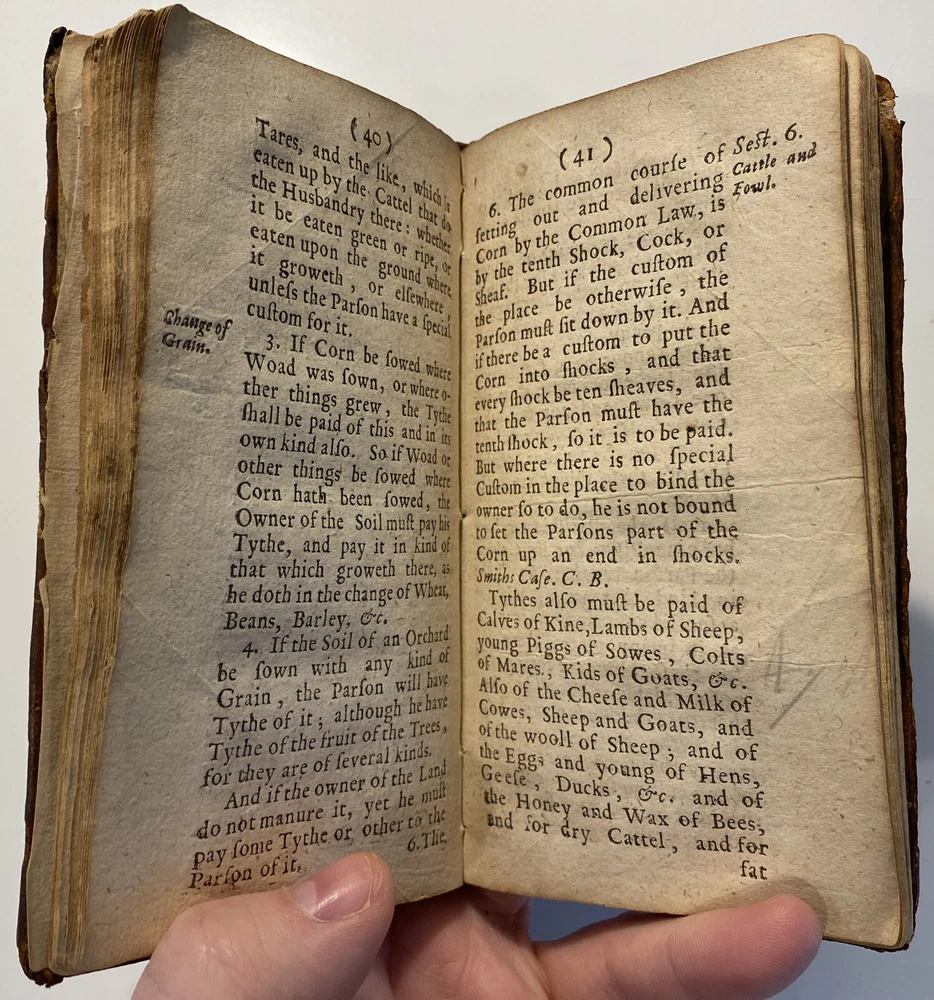 (40)
Tares, and the like, which is
eaten up by the Cattel that do
the Husbandry there: whether
it be eaten green or ripe, or
eaten upon the ground where
it groweth, or elſewhere,
unleſs the Parſon have a ſpecial
cuſtom for it.
Change of
Grain.
3. If Corn be ſowed where
Woad was ſown, or where o-
ther things grew, the Tythe
ſhall be paid of this and in its
own kind alſo. So if Woad or
other things be ſowed where
Corn hath been ſowed, the
Owner of the Soil muſt pay his
Tythe, and pay it in kind of
that which groweth there, as
he doth in the change of Wheat,
Beans, Barley, &c.
4. If the Soil of an Orchard
be ſown with any kind of
Grain, the Parſon will have
Tythe of it; although he have
Tythe of the fruit of the Trees,
for they are of ſeveral kinds.
And if the owner of the Land
do not manure it, yet he muſt
pay ſome Tythe or other to the
Parſon of it.
6. The
(41)
Sect. 6.
Cattle and
Fowl.
6. The common courſe of
ſetting out and delivering
Corn by the Common Law, is
by the tenth Shock, Cock, or
Sheaf. But if the cuſtom of
the place be otherwiſe, the
Parſon muſt ſit down by it. And
if there be a cuſtom to put the
Corn into ſhocks, and that
every ſhock be ten ſheaves, and
that the Parſon muſt have the
tenth ſhock, ſo it is to be paid.
But where there is no ſpecial
Cuſtom in the place to bind the
owner ſo to do, he is not bound
to ſet the Parſons part of the
Corn up an end in ſhocks.
Smiths Caſe. C. B.
Tythes alſo muſt be paid of
Calves of Kine, Lambs of Sheep,
young Piggs of Sowes, Colts
of Mares, Kids of Goats, &c.
Alſo of the Cheeſe and Milk of
Cowes, Sheep and Goats, and
of the wooll of Sheep; and of
the Eggs and young of Hens,
Geeſe, Ducks, &c. and of
the Honey and Wax of Bees,
and for dry Cattel, and for
fat